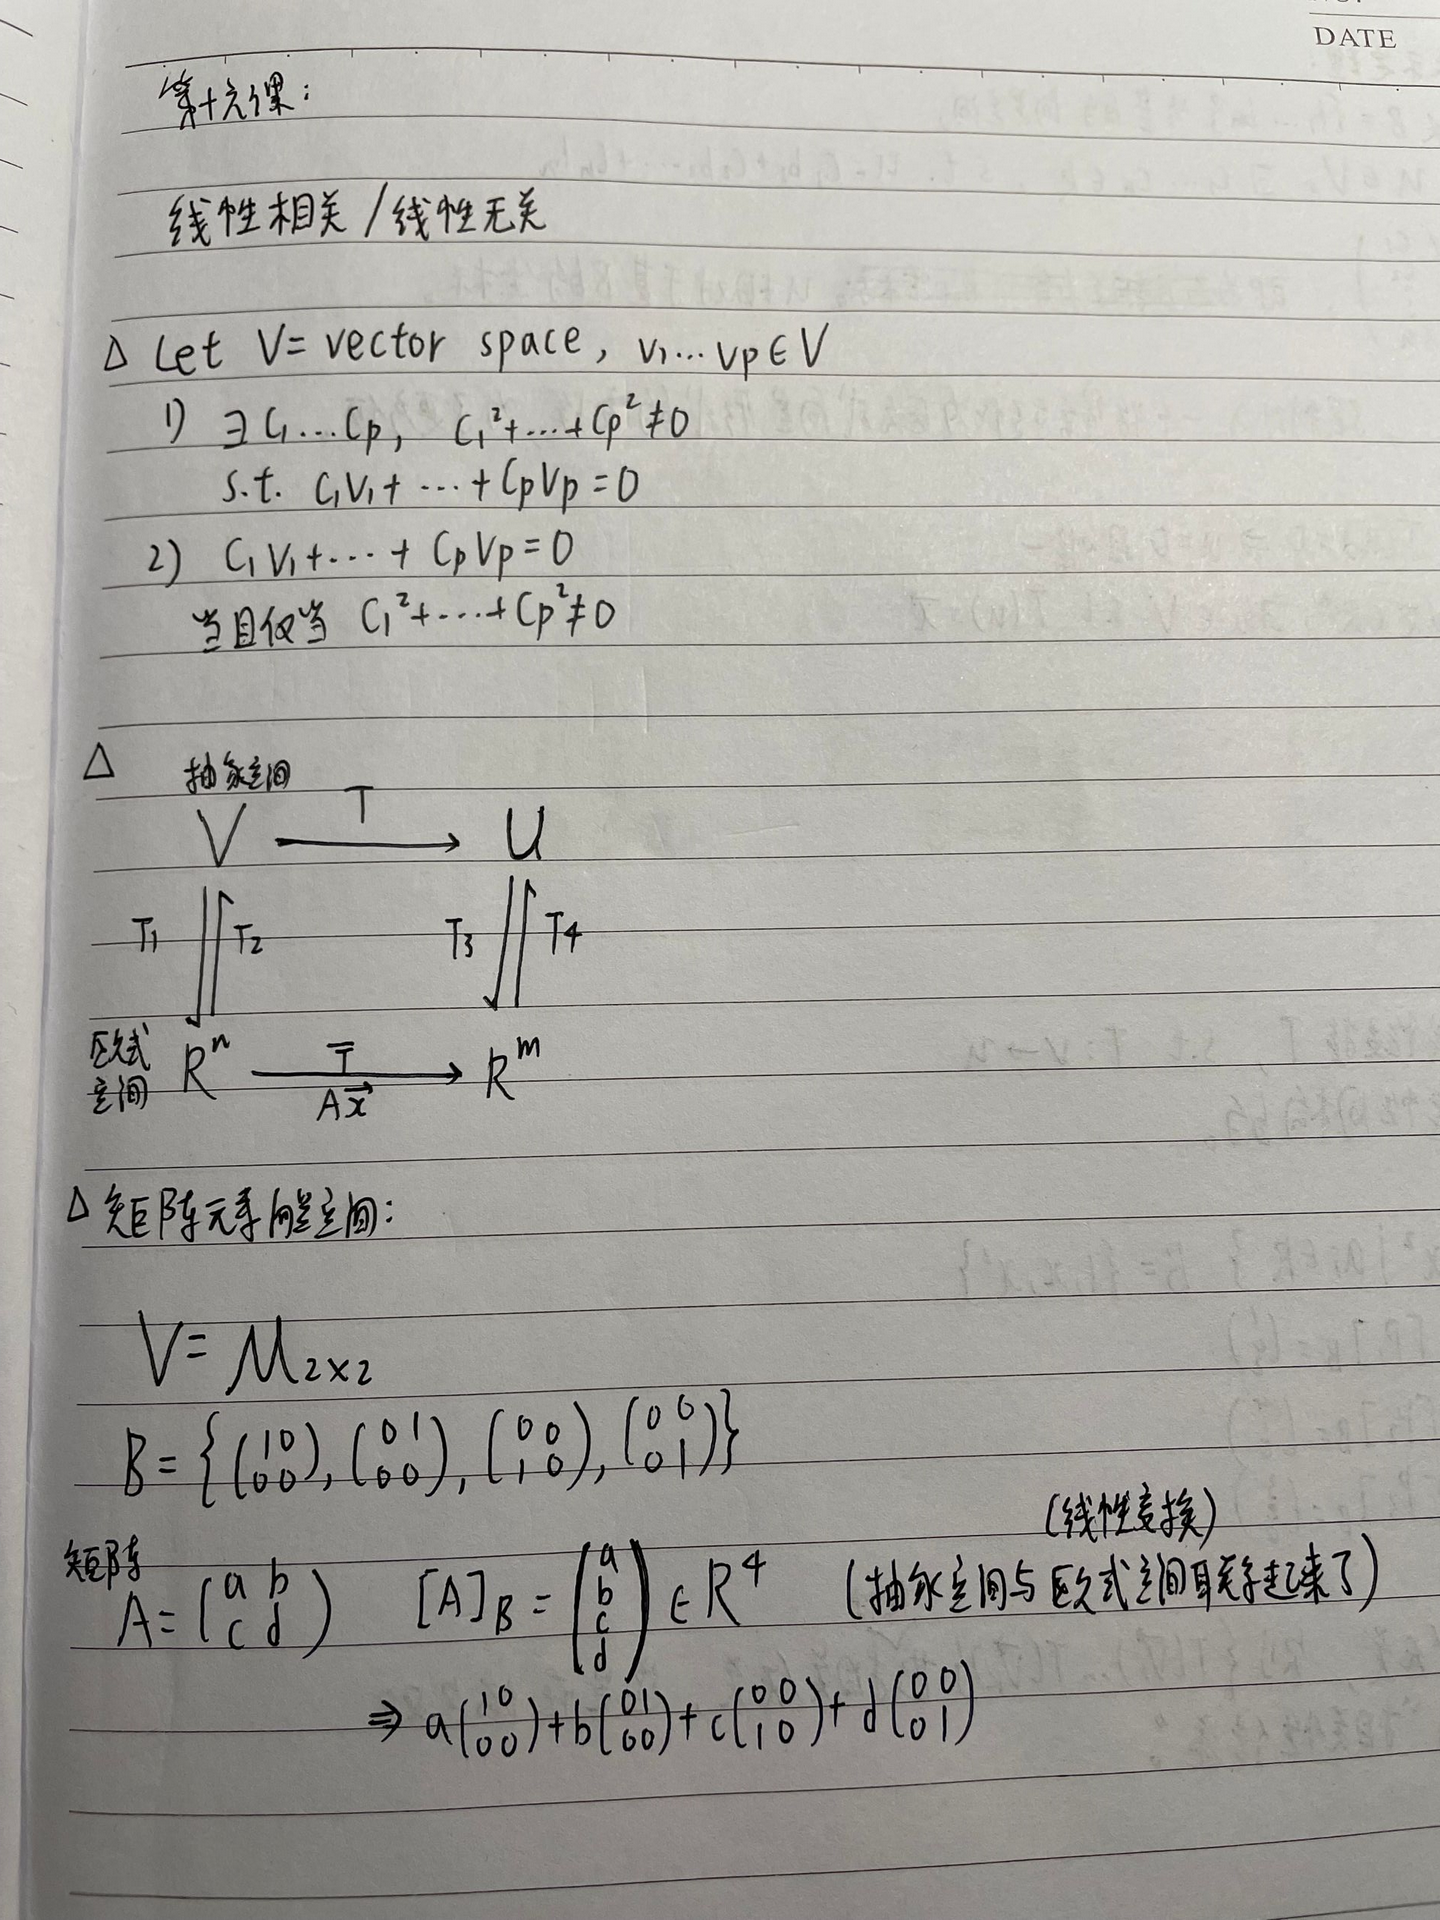 DATE
第十六课:
线性相关/线性无关
Δ Let V= vector space, v₁...vp∈V
1) ∃ C₁...Cp, C₁²+...+Cp²≠0
s.t. C₁V₁+ ... +CpVp=0
2) C₁V₁+...+ CpVp=0
当且仅当 C₁²+...+Cp²≠0
Δ 抽象空间
V T U
T₁ T₂ T₃ T₄
欧式空间 Rⁿ T̅ Rᵐ
Ax⃗
Δ 矩阵元素向量空间:
V= M₂ₓ₂
B={(1 0
0 0),(0 1
0 0),(0 0
1 0),(0 0
0 1)}
(线性变换)
矩阵
A=(a b
c d) [A]B=(a
b
c
d)∈R⁴ (抽象空间与欧式空间联系起来了)
⇒ a(1 0
0 0)+b(0 1
0 0)+c(0 0
1 0)+d(0 0
0 1)